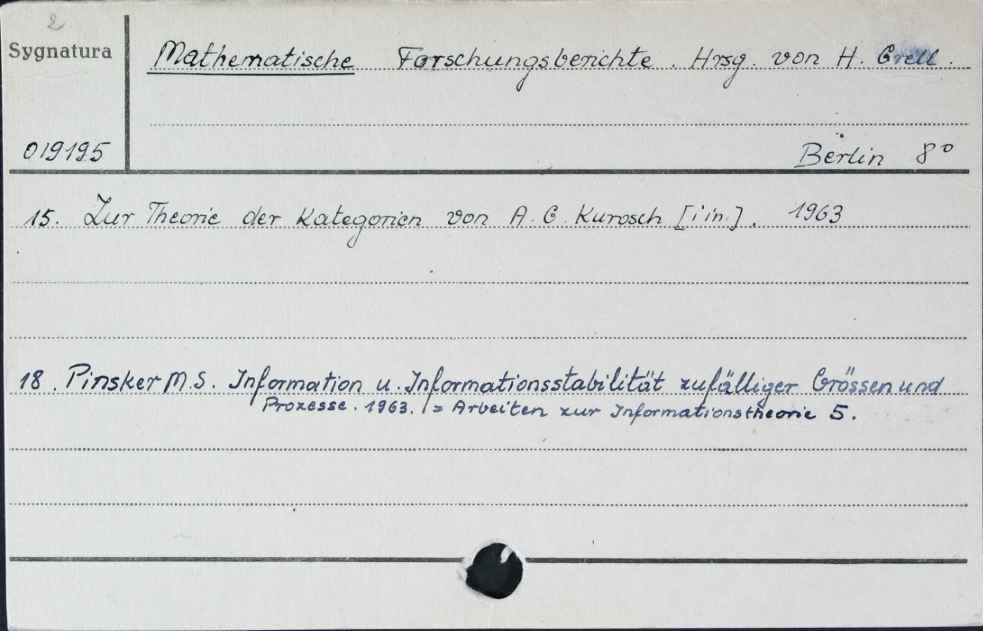 2
Sygnatura
Mathematische Forschungsberichte. Hrsg. von H. Grell.
019195
Berlin 8°
15. Zur Theorie der Kategorien von A. G. Kurosch [i in.]. 1963
18. Pinsker M.S. Information u. Informationsstabilität zufälliger Grössen und
Prozesse. 1963. = Arbeiten zur Informationstheorie 5.